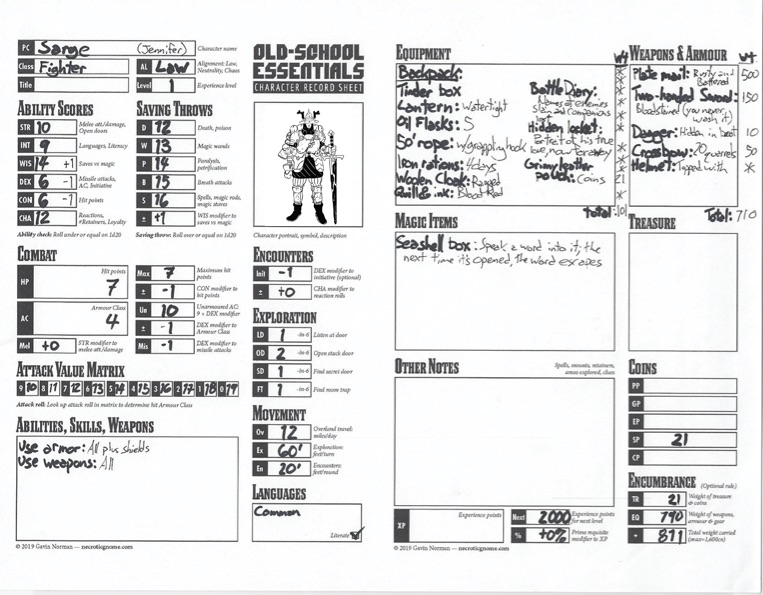 PC Sarge (Jennifer) Character name
Class Fighter AL Law Alignment: Law, Neutrality, Chaos
Title Level 1 Experience level
OLD-SCHOOL
ESSENTIALS
CHARACTER RECORD SHEET
ABILITY SCORES
STR 10 Melee att/damage, Open doors
INT 9 Languages, Literacy
WIS 14 +1 Saves vs magic
DEX 6 -1 Missile attacks, AC, Initiative
CON 6 -1 Hit points
CHA 12 Reactions, #Retainers, Loyalty
Ability check: Roll under or equal on 1d20
SAVING THROWS
D 12 Death, poison
W 13 Magic wands
P 14 Paralysis, petrification
B 15 Breath attacks
S 16 Spells, magic rods, magic staves
± +1 WIS modifier to saves vs magic
Saving throw: Roll over or equal on 1d20
Character portrait, symbol, description
COMBAT
HP 7 Hit points
AC 4 Armour Class
Mel +0 STR modifier to melee att/damage
Max 7 Maximum hit points
± -1 CON modifier to hit points
Un 10 Unarmoured AC: 9 + DEX modifier
± -1 DEX modifier to Armour Class
Mis -1 DEX modifier to missile attacks
ATTACK VALUE MATRIX
9 10 8 11 7 12 6 13 5 14 4 15 3 16 2 17 1 18 0 19
Attack roll: Look up attack roll in matrix to determine hit Armour Class
ABILITIES, SKILLS, WEAPONS
Use armor: All plus shields
Use weapons: All
ENCOUNTERS
Init -1 DEX modifier to initiative (optional)
± +0 CHA modifier to reaction rolls
EXPLORATION
LD 1 -in-6 Listen at door
OD 2 -in-6 Open stuck door
SD 1 -in-6 Find secret door
FT 1 -in-6 Find room trap
MOVEMENT
Ov 12 Overland travel: miles/day
Ex 60' Exploration: feet/turn
En 20' Encounters: feet/round
LANGUAGES
Common
Literate
© 2019 Gavin Norman — necroticgnome.com
EQUIPMENT wt
Backpack:
Tinder box
Lantern: Watertight
Oil Flasks: 5
50' rope: w/grappling hook
Iron rations: 4 days
Woolen Cloak: Ragged
Quill & ink: Blood Red
Battle Diary:
Names of enemies
slain and companions
lost
Hidden locket:
Portrait of his true
love, now far away
Grimy leather
pouch: coins
21
total: 101
WEAPONS & ARMOUR wt.
Plate mail: Rusty and Battered 500
Two-handed Sword: 150
Bloodstained (you never wash it)
Dagger: Hidden in boot 10
Crossbow: 20 quarrels 50
Helmet: Topped with *
Total: 710
MAGIC ITEMS
Seashell box: Speak a word into it, the
next time it's opened, the word escapes
TREASURE
OTHER NOTES Spells, mounts, retainers, areas explored, clues
COINS
PP
GP
EP
SP 21
CP
ENCUMBRANCE (Optional rule)
TR 21 Weight of treasure & coins
EQ 790 Weight of weapons, armour & gear
+ 811 Total weight carried (max=1,600cn)
XP Experience points
Next 2000 Experience points for next level
% +0% Prime requisite modifier to XP
© 2019 Gavin Norman — necroticgnome.com